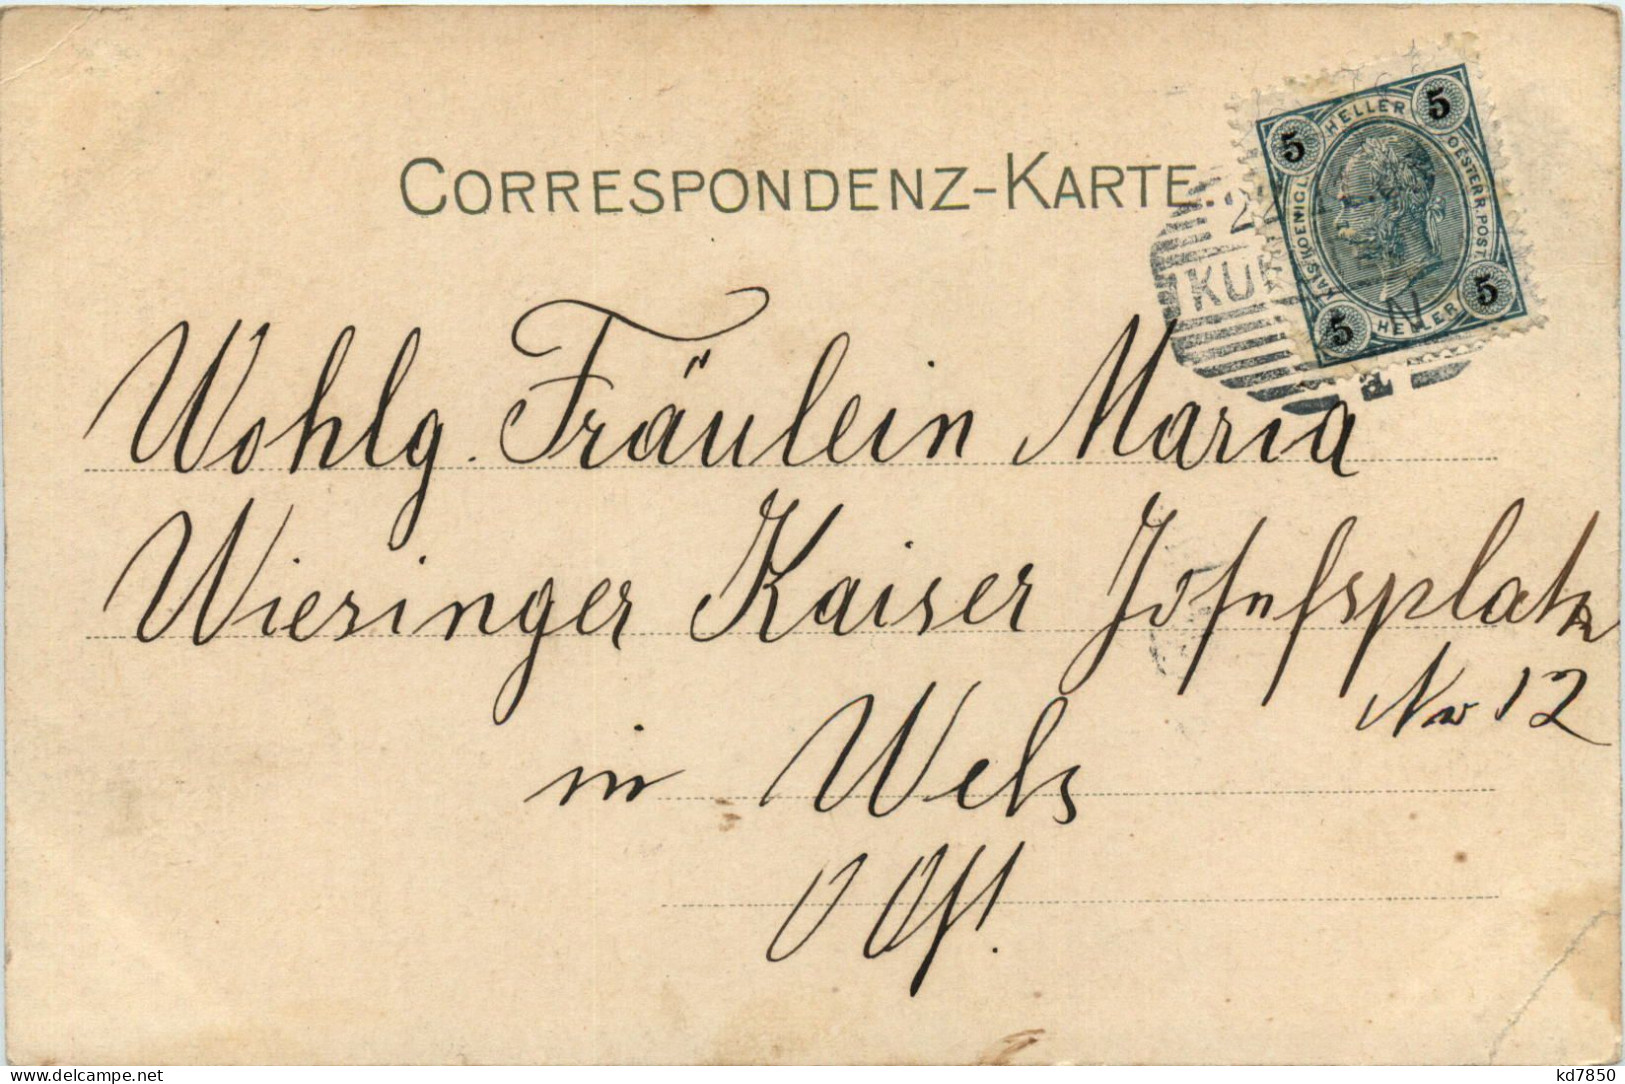 CORRESPONDENZ-KARTE.
5 HELLER 5
KAIS. KOENIGL. OESTERR. POST.
5 HELLER 5
2
KU
N
Wohlg. Fräulein Maria
Wiesinger Kaiser Josefsplatz
Nr 12
in Wels
O Öst.
www.delcampe.net
kd7850